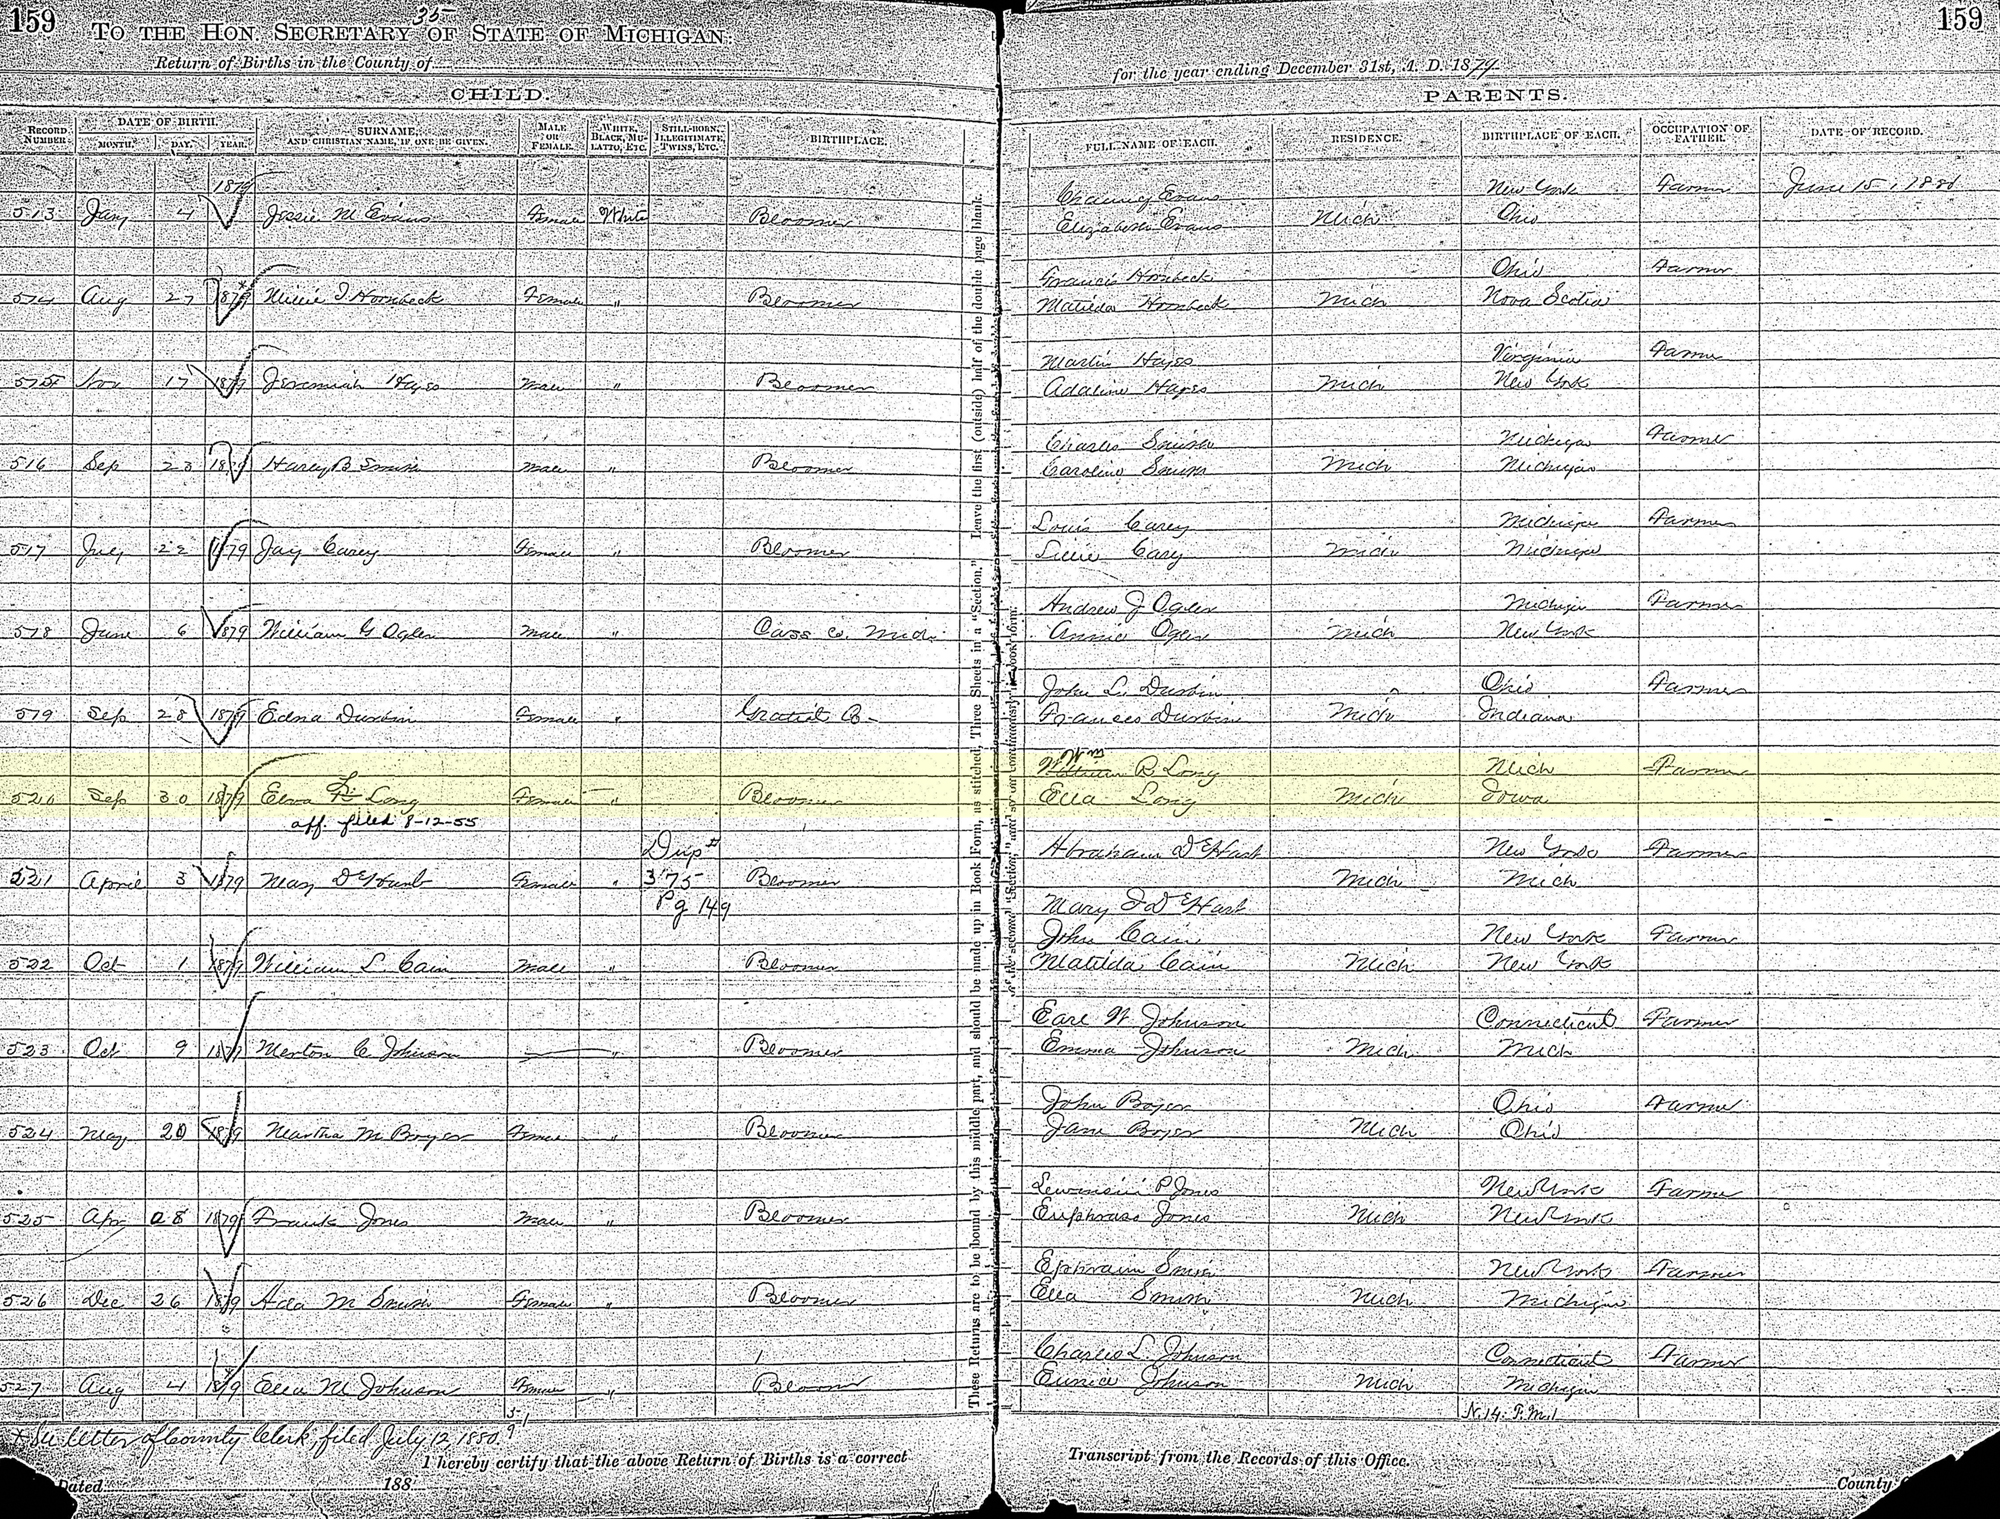 159
35
TO THE HON. SECRETARY OF STATE OF MICHIGAN.
Return of Births in the County of
CHILD.
RECORD NUMBER. DATE OF BIRTH. MONTH. DAY. YEAR. SURNAME, AND CHRISTIAN NAME, IF ONE BE GIVEN. MALE OR FEMALE. WHITE, BLACK, MULATTO, ETC. STILL-BORN, ILLEGITIMATE, TWINS, ETC. BIRTHPLACE.
1879
513 Jany 4 Jessie M Evans Female White Bloomer
514 Aug 27 1879 * I Hornbeck Female " Bloomer
515 Nov 17 1879 Jeremiah Hayes Male " Bloomer
516 Sep 23 1879 Harey B Smith Male " Bloomer
517 July 22 1879 Jay Carey Female " Bloomer
518 June 6 1879 William G Ogden Male " Cass Co. Mich.
519 Sep 28 1879 Edna Durbin Female " Gratiot Co-
520 Sep 30 1879 Elva L. Long Female " Bloomer
aff. filed 8-12-55
Dup #
521 April 3 1879 May DeHart Female " 375 Bloomer
Pg 149
522 Oct 1 1879 William L. Cain Male " Bloomer
523 Oct 9 1879 Merton C Johnson " Bloomer
524 May 20 1879 Martha M Boyer Female " Bloomer
525 Apr 28 1879 Frank Jones Male " Bloomer
526 Dec 26 1879 Ada M Smith Female " Bloomer
527 Aug 4 1879 * Ella M Johnson Female " Bloomer
* See letter of County Clerk, filed July 12, 1880.
I hereby certify that the above Return of Births is a correct
Dated 188
These Returns are to be bound by this middle part, and should be made up in Book Form, as stitched, Three Sheets in a "Section." Leave the first (outside) half of the double page blank.
159
for the year ending December 31st, A. D. 1879
PARENTS.
FULL NAME OF EACH. RESIDENCE. BIRTHPLACE OF EACH. OCCUPATION OF FATHER. DATE OF RECORD.
Chauncy Evans New York Farmer June 15, 1880
Elizabeth Evans Mich Ohio
Francis Hornbeck Ohio Farmer
Matilda Hornbeck Mich Nova Scotia
Martin Hayes Virginia Farmer
Adaline Hayes Mich New York
Charles Smith Michigan Farmer
Caroline Smith Mich Michigan
Louis Carey Michigan Farmer
Lillie Cary Mich Michigan
Andrew J Ogden Michigan Farmer
Annie Ogden Mich New York
John L. Durbin Ohio Farmer
Frances Durbin Mich Indiana
Wm
William R. Long Mich Farmer
Ella Long Mich Iowa
Abraham DeHart New York Farmer
Mich Mich
Mary J DeHart
John Cain New York Farmer
Matilda Cain Mich New York
Earl W Johnson Connecticut Farmer
Emma Johnson Mich Mich
John Boyer Ohio Farmer
Jane Boyer Mich Ohio
P. Jones New York Farmer
Jones Mich New York
Ephraim Smith New York Farmer
Ella Smith Mich Michigan
Charles L. Johnson Connecticut Farmer
Eunice Johnson Mich Michigan
Transcript from the Records of this Office.
County